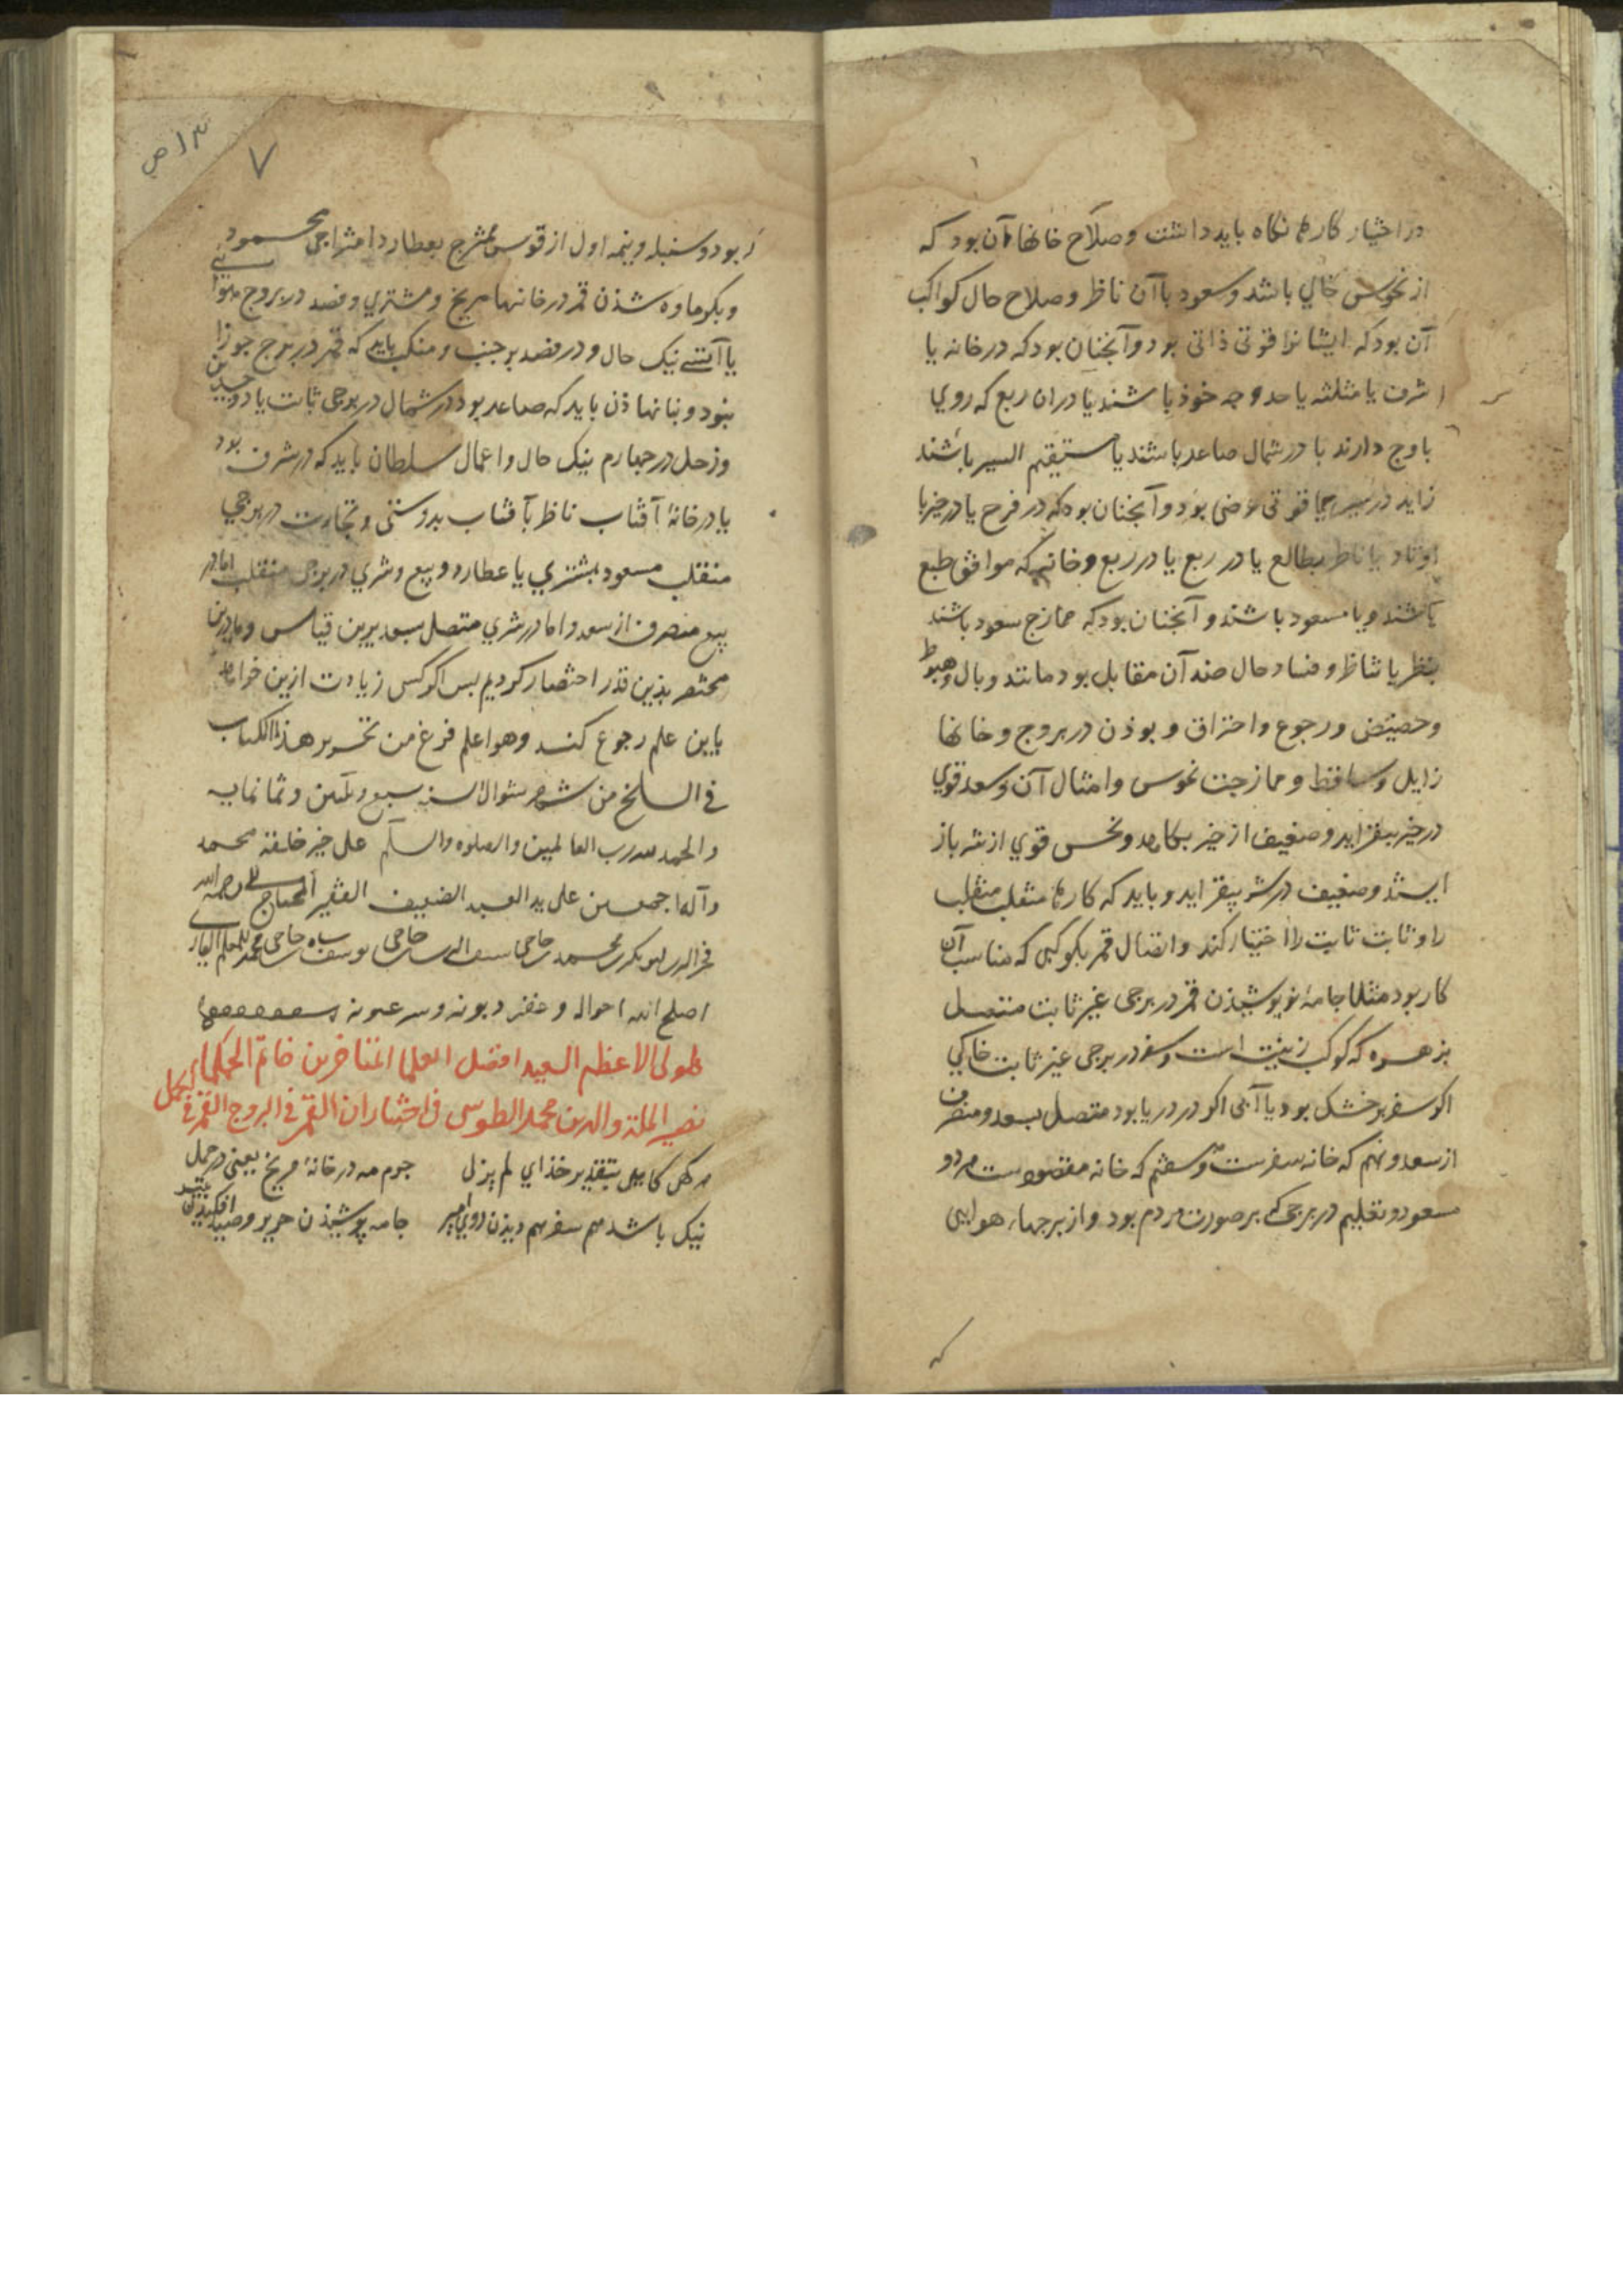 در اختیار کارها نگاه باید داشت و صلاح خانها آن بود که
از نحوس خالی باشد و سعود باآن ناظر و صلاح حال کواکب
آن بود که ایشانرا قوتی ذاتی بود و آنجنان بود که در خانه یا
شرف یا مثلثه یا حد و جه خوذ باشند یا دران ربع که روی
باوج دارند یا در شمال صاعد باشند یا مستقیم السیر باشند
زاید در سیر یا قوتی عرضی بود و آنجنان بود که در فرح یا در حیز یا
اوتاد یا ناظر بطالع یا در ربع یا در ربع و خانه که موافق طبع
باشند و یا مسعود باشند و آنجنان بود که ممازج سعود باشند
بنظر یا تناظر و فساد حال ضد آن مقابل بود مانند وبال و هبوط
و حضیض و رجوع و احتراق و بوذن در بروج و خانها
زایل و ساقط و ممازجت نحوس و امثال آن و سعد قوی
در خیر بیفزاید و ضعیف از خیر بکاهد و نحس قوی از شر باز
ایستد و ضعیف در شر بیفزاید و باید که کارها منقلب منقلب
را و ثابت ثابت را اختیار کند و اتصال قمر بکوکبی که مناسب آن
کار بود مثلا جامهٔ نو پوشیذن قمر در برجی غیر ثابت متصل
بزهره که کوکب زینت است و سفر در برجی غیر ثابت خاکی
اکر سفر بر خشک بود یا آبی اکر در دریا بود متصل بسعد و منصرف
از سعد و نهم که خانه سفرست و هفتم که خانه مقصودست هر دو
مسعود و تعلیم در برجی که بر صورت مردم بود و از برجها هوایی
بود و سنبله و نیمه اول از قوس ممتزج بعطارد امتزاجی محمود
و بکرماوه شذن قمر در خانها مریخ و مشتری و فصد در بروج هوایی
یا آتشی نیک حال و در فصد بر جنب و منکب باید که قمر در برج جوزا
نبود و بنا نهاذن باید که صاعد بود در شمال در برجی ثابت یا ذو جسدین
و زحل در جهارم نیک حال و اعمال سلطان باید که در شرف بود
یا در خانهٔ آفتاب ناظر بآفتاب بدوستی و تجارت در برجی
منقلب مسعود بمشتری یا عطارد و بیع و شری در برجی منقلب اما در
بیع منصرف از سعد و اما در شری متصل بسعد برین قیاس و ما درین
مختصر بذین قدر اختصار کردیم بس اکر کسی زیادت ازین خواهد
باین علم رجوع کند وهو اعلم فرغ من تحریر هذا الکتاب
فی السلخ من شهر شوال لسنه سبع و ثلثین و ثمانمایه
والحمد لله رب العالمین والصلوه والسلام علی خیر خلقه محمد
وآله اجمعین علی ید العبد الضعیف الفقیر المحتاج الی رحمة الله
اصلح الله احواله و غفر ذنوبه و ستر عیوبه
لمولی الاعظم السعید افضل العلما المتاخرین خاتم الحکماء
نصیر الملة والدین محمد الطوسی فی اختیارات القمر فی البروج القمر فی الحمل
هر کهی کایی بتقدیر خذای لم یزل جرم مه در خانهٔ مریخ یعنی در حمل
نیک باشد هم سفر هم دیذن روی امیر جامه پوشیذن حریر و صید افکندن